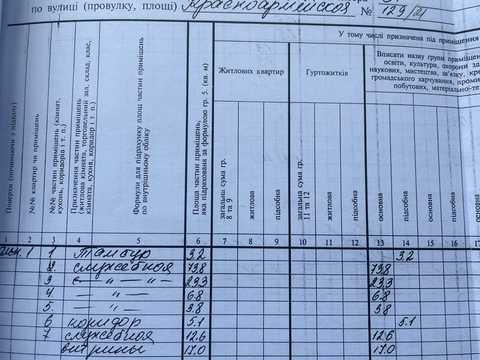 по вулиці (провулку, площі) Красноармейская, № 129/
У тому числі призначена під приміщення
Поверхи (починаючи з підвалу)
№№ квартир чи приміщень
№№ частин приміщень (кімнат, кухонь, коридорів і т. п.)
Призначення частин приміщень (житлова кімната, торговельний зал, склад, клас, кімната, сухня, коридор і т. п.)
Формули для підрахунку площ частин приміщень по внутрішньому обміру
Площа частин приміщень, яка підрахована за формулою гр. 5. (кв. м)
Житлових квартир
загальна сума гр. 8 та 9
житлова
підсобна
Гуртожитків
загальна сума гр. 11 та 12
житлова
підсобна
Вписати назву групи приміщень
освіти, культури, охорони зд
наукових, мистецтва, зв'язку, кре
громадського харчування, проми
побутових, матеріально-те
основна
підсобна
основна
підсобна
основна
1 2 3 4 5 6 7 8 9 10 11 12 13 14 15 16 17
1 1 Тамбур 3.2 3.2
2. служебная 73.8 73.8
3 — " — " — 23.3 23.3
4 — " — 6.8 6.8
5. — " — 3.8 3.8
6 коридор 5.1 5.1
7 служебная 12.6 12.6
витрины 17.0 17.0